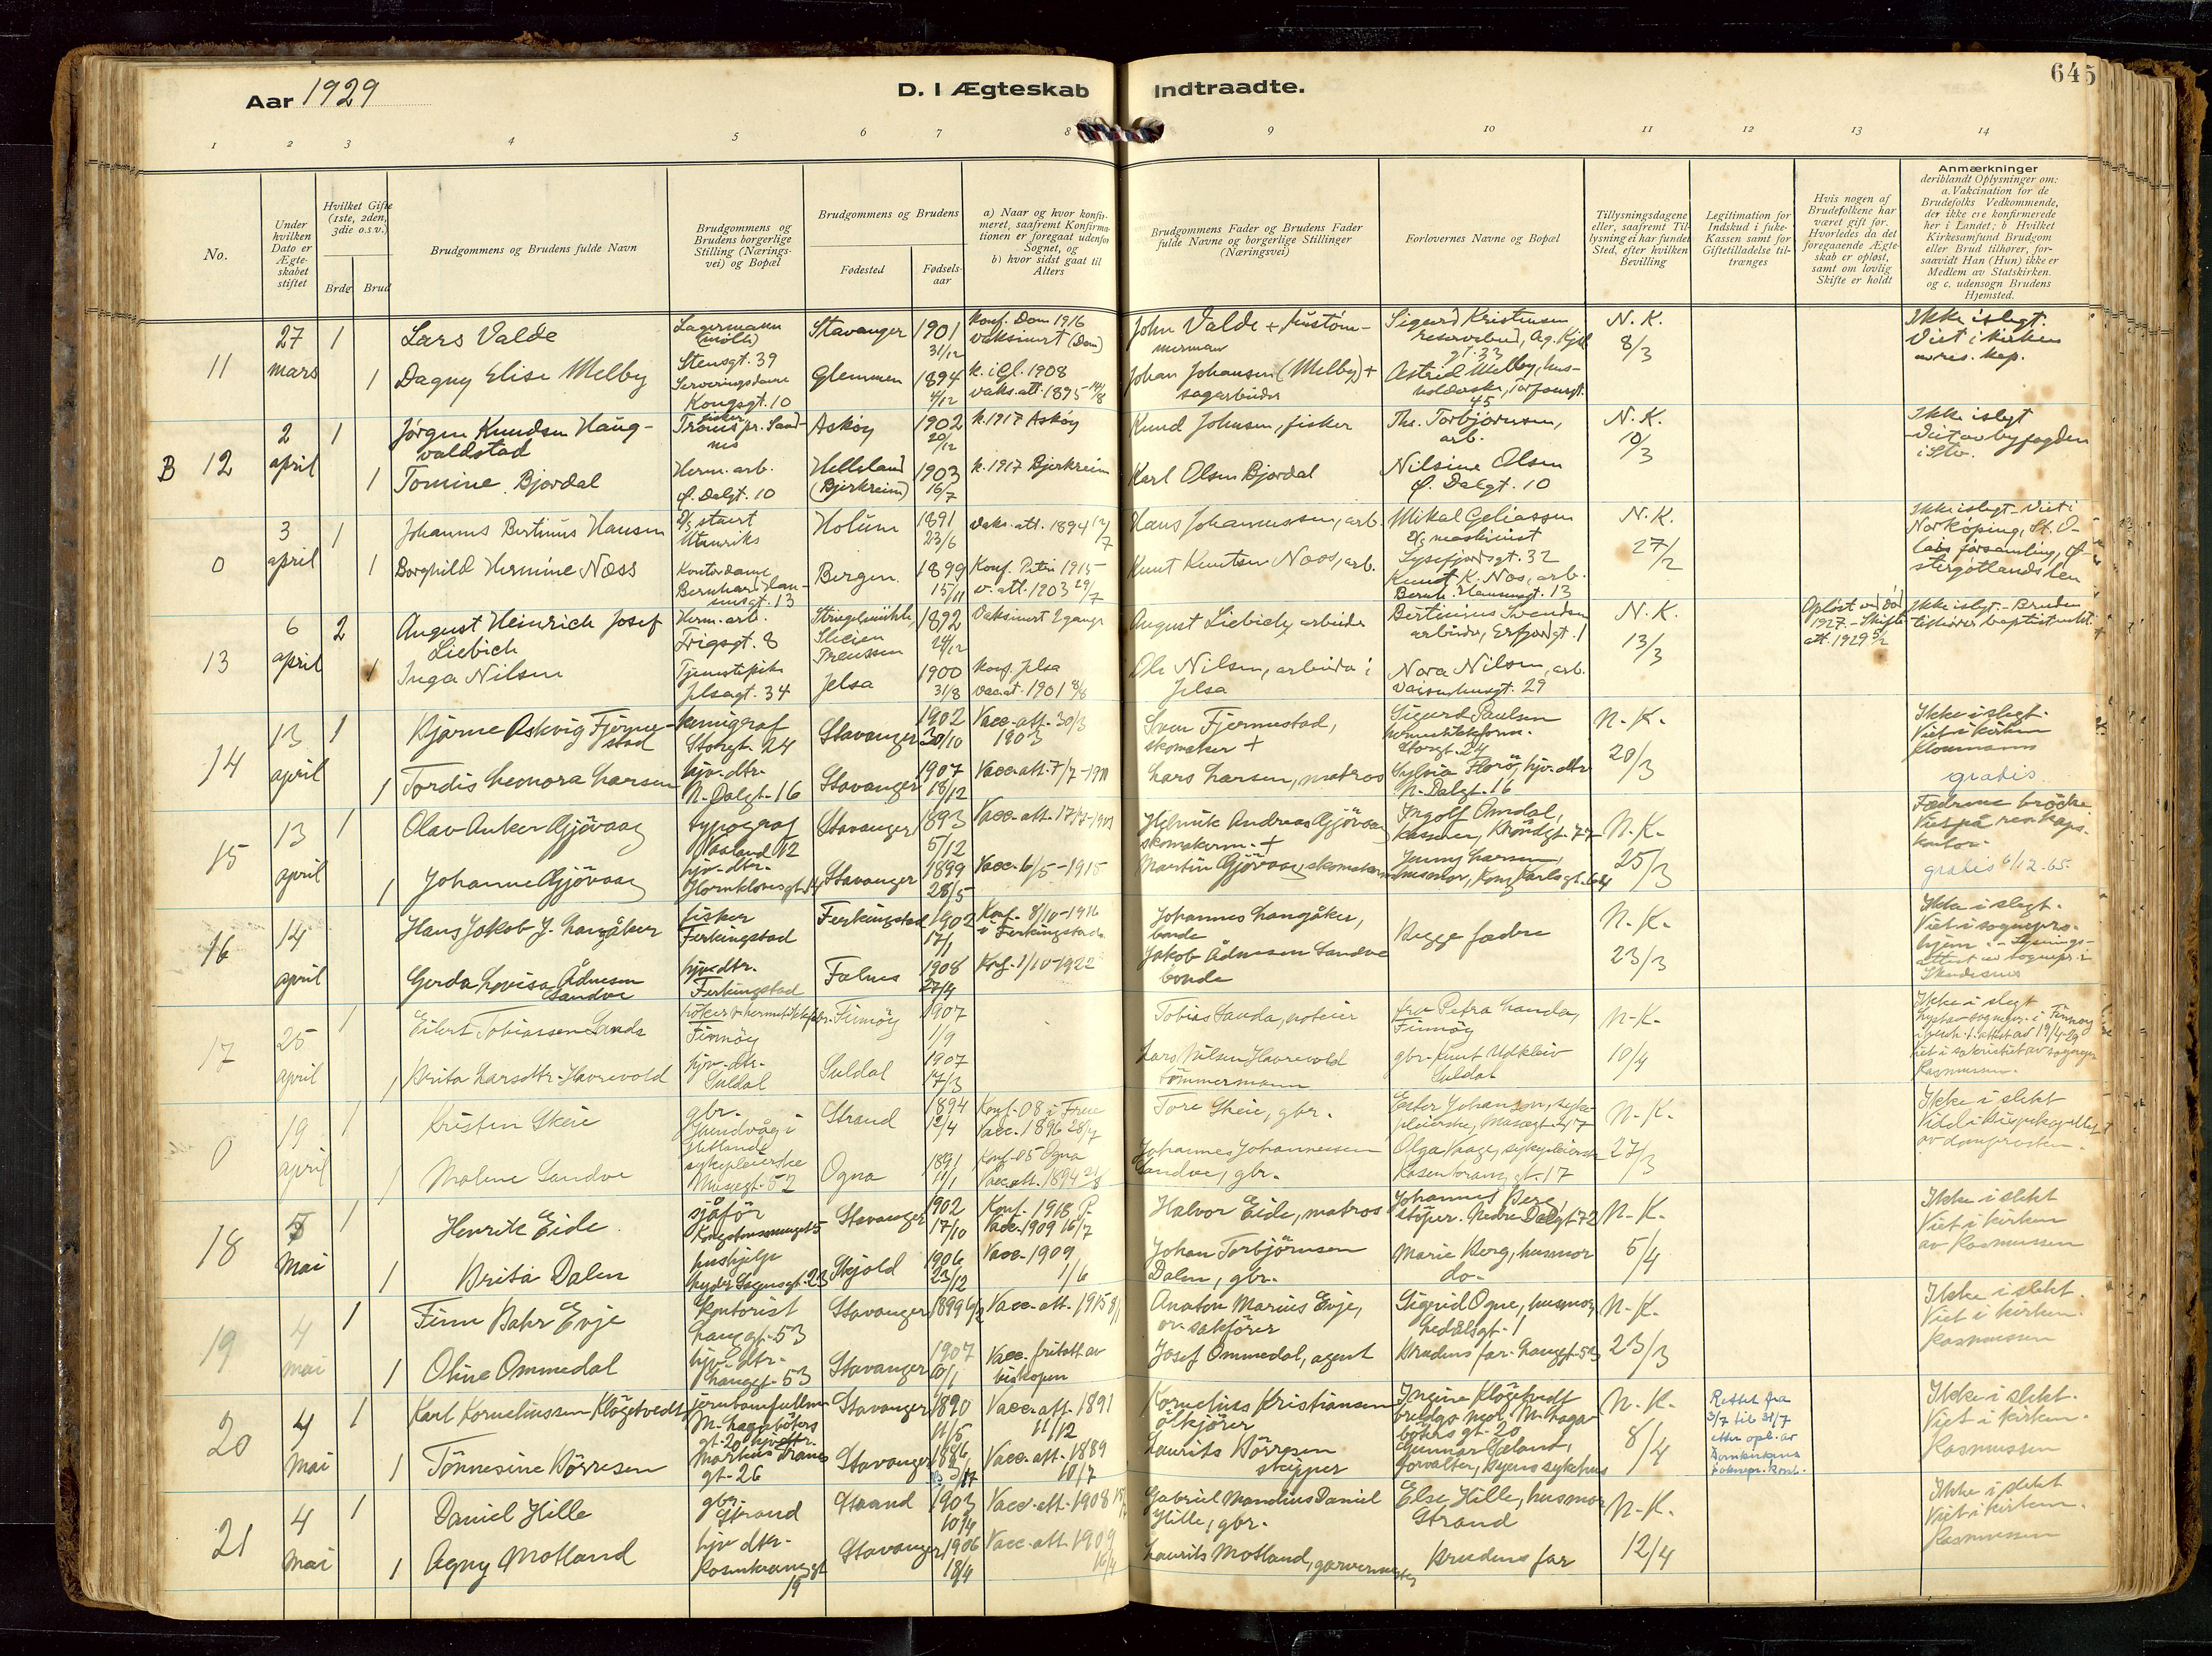 Aar 1929
D. I Ægteskab Indtraadte.
645
1 2 3 4 5 6 7 8 9 10 11 12 13 14
No.
Under hvilken Dato er Ægteskabet stiftet
Hvilket Gifte (1ste, 2den, 3die o.s.v.)
Brdg. Brud
Brudgommens og Brudens fulde Navn
Brudgommens og Brudens borgerlige Stilling (Næringsvei) og Bopæl
Brudgommens og Brudens
Fødested
Fødselsaar
a) Naar og hvor konfirmeret, saafremt Konfirmationen er foregaat udenfor Sognet, og
b) hvor sidst gaat til Alters
Brudgommens Fader og Brudens Fader fulde Navne og borgerlige Stillinger (Næringsvei)
Forlovernes Navne og Bopæl
Tillysningsdagene eller, saafremt Tillysning ei har fundet Sted, efter hvilken Bevilling
Legitimation for Indskud i Enke-Kassen samt for Giftetilladelse tiltrænges
Hvis nogen af Brudefolkene har været gift før. Hvorledes da det foregaaende Ægteskab er opløst, samt om lovlig Skifte er holdt
Anmærkninger
deriblandt Oplysninger om: a. Vakcination for de Brudefolks Vedkommende, der ikke ere konfirmerede her i Landet; b Hvilket Kirkesamfund Brudgom eller Brud tilhører, forsaavidt Han (Hun) ikke er Medlem av Statskirken. og c. udensogn Brudens Hjemsted.
11 27 mars 1 Lars Valde Lagermann Stensgt. 39 Stavanger 1901 31/12 konf. Dom 1916 vaksinert (Dom) John Valde + Sigurd Kristensen N. K. 8/3 Ikke i slegt. Viet i kirken av res. kap.
1 Dagny Elise Melby Serveringsdame Kongsgt. 10 Glemmen 1894 4/12 k. i Gl. 1908 vaks. att. 1895 Johan Johansen (Melby) + sagarbeider Astrid Melby, husholderske 45
B 12 2 april 1 Jørgen Knudsen Haugvaldstad fisker pr. Sandnes Askøy 1902 20/12 k. 1917 Askøy Knud Johnsen, fisker Ths. Torbjørnsen, arb. N. K. 19/3 Ikke i slegt Viet av byfogden i Stv.
1 Tomine Bjordal Herm. arb. Ø. Dalgt. 10 Helleland (Bjerkreim) 1903 16/7 k. 1917 Bjerkreim Karl Olsen Bjordal Nilsine Olsen Ø. Dalgt. 10
0 3 april 1 Johannes Bertinus Hansen Utenriks Holum 1891 23/6 Vaks. att. 1894 Hans Johannessen, arb. Mikal Geliassen maskinist Lysefjordsgt. 32 N. K. 27/2 Ikke i slegt - Viet i Norköping, St. Olais församling, Östergötlands len
1 Borghild Hermine Næss Kontordame Bernhard Hansensgt. 13 Bergen 1899 15/11 Konf. Petri 1915 v. att. 1903 29/7 Knut Knutsen Noos, arb. Knut K. Nos, arb. Bernh. Hansensgt. 13
13 6 april 2 August Heinrich Josef Liebich Herm. arb. Erigsgt. 8 Preussen 1892 24/12 Vaksinert 2 gange August Liebich, arbeider Bertinius Svendsen arbeider, Erfjordgt. 1 N. K. 13/3 Opløst ved død 1927. - Skifte att. 1929 5/2 Ikke i slegt. - Bruden tilhører baptistmenh.
1 Inga Nilsen Tjenestepike Jelsagt. 34 Jelsa 1900 31/8 konf. Jelsa vac. at. 1901 8/8 Ole Nilsen, arbeider i Jelsa Nora Nilsen, arb. Vaisenhusgt. 29
14 13 april 1 Bjarne Askvig Fjermestad kemigraf Storgt. 24 Stavanger 1902 30/10 Vacc. att. 30/3 1903 Sven Fjermestad, skomaker + Sigurd Paulsen Storgt. 24 N. K. 20/3 Ikke i slegt. Viet i kirken
1 Tordis Leonora Larsen hjv. dtr. N. Dalgt. 16 Stavanger 1907 18/12 Vacc. att. 7/7 - Lars Larsen, matros Sylvia Florø, hjv. dtr. N. Dalgt. 16 gratis
15 13 april 1 Olav Anker Gjövaag typograf Vaaland 12 Stavanger 1893 5/12 Vacc. att. Helmik Andreas Gjövaag skomakerm. + Ingolf Omdal, N. K. 25/3 Fædrene brødre Viet på res. kaps. kontor.
1 Johanne Gjövaag hjv. dtr. Hornklovesgt. Stavanger 1899 28/5 Vacc. 6/5 - 1915 Martin Gjövaag, skomaker Jenny Larsen, husmor, Kong Karlsgt. 64 gratis 6/12-65.
16 14 april Hans Jakob J. Langåker fisker Ferkingstad Ferkingstad 1902 17/1 Konf. 8/10-1916 i Ferkingstad Johannes Langåker, bonde Begge fædre N. K. 23/3 Ikke i slegt. Viet i sognepr. hjem. - Lysningsattest av sognepr. i Skudesnes
Gerda Lovisa Ådnesen Sandve hjv. dtr. Ferkingstad Falnes 1908 27/4 Konf. 1/10-1922 Jakob Ådnesen Sandve bonde
17 25 april 1 Eilert Tobiassen Landa Finnöy Finnöy 1907 1/9 Tobias Landa, fru Petra Landa, Finnöy N. K. 10/4 Ikke i slegt
1 Brita Larsdtr. Havrevold hjv. dtr. Suldal Suldal 1907 17/3 Lars Nilsen Havrevold tömmermann gbr. Knut Udkleiv Suldal Rasmussen.
0 19 april 1 Kristen Skeie gbr. Strand 1894 12/4 Konf. 08 i Vacc. 1896 28/7 Tore Skeie, gbr. Ester Johanson, sykepleierske, Musegt. N. K. 27/3 Ikke i slekt Viet i av domprosten.
1 Malene Sandve sykepleierske Musegt. 52 Ogna 1891 11/1 Konf. 05 Ogna Vacc. att. 1894 Johannes Johannessen Sandve, gbr. Olga Vrage, sykepleierske Rosenkransgt. 17
18 5 Mai 1 Henrik Eide sjåför Stavanger 1902 17/10 Konf. 1918 P. Vacc. 1909 16/7 Halvor Eide, matros Johannes Berg, stöper. Nedre Dalgt. 72 N. K. 5/4 Ikke i slekt Viet i kirken av Rasmussen
1 Brita Dalen hushjelp Lyder Sagensgt. 23 Skjold 1906 23/12 Vacc. 1909 1/6 Johan Torbjörnsen Dalen, gbr. Marie Berg, husmor do.
19 4 mai 1 Finn Bahr Evje Kontorist Langgt. 53 Stavanger 1899 Vacc. att. 1915 Anaton Marius Evje, or. sakförer Sigrid Ogne, husmor, Hedalsgt. 1 N. K. 23/3 Ikke i slekt. Viet i kirken. Rasmussen
1 Oline Ommedal hjv. dtr. Langgt. 53 Stavanger 1907 10/1 Vacc. fritatt av biskopen Josef Ommedal, agent Brudens far. Langgt. 53
20 4 Mai 1 Karl Korneliussen Klögetvedt M. Hagabökersgt. 20 Stavanger 1890 11/5 Vacc. att. 1891 11/12 Kornelius Kristiansen ölkjörer Ingine Klögetvedt M. Hagabökersgt. 20 N. K. 8/4 Rettet fra 3/7 til 31/7 etter opl. av Domkirkens soknepr. kont. Ikke i slekt. Viet i kirken. Rasmussen
1 Tönnesine Börresen hjv. dtr. Markus Tranes gt. 26 Stavanger 1886 3/7 Vacc. att. 1889 10/7 Laurits Börresen skipper Gunnar Sæland, forvalter, Byens sykehus
21 4 Mai 1 Daniel Hille gbr. Strand Strand 1903 10/4 Vacc. att. 1908 Gabriel Mandius Daniel Hille, gbr. Else Hille, husmor Strand N. K. 12/4 Ikke i slekt Viet i kirken. Rasmussen
1 Agny Motland hjv. dtr. Rosenkransgt. 19 Stavanger 1906 18/4 Vacc. att. 1909 16/4 Laurits Motland, garvermester Brudens far